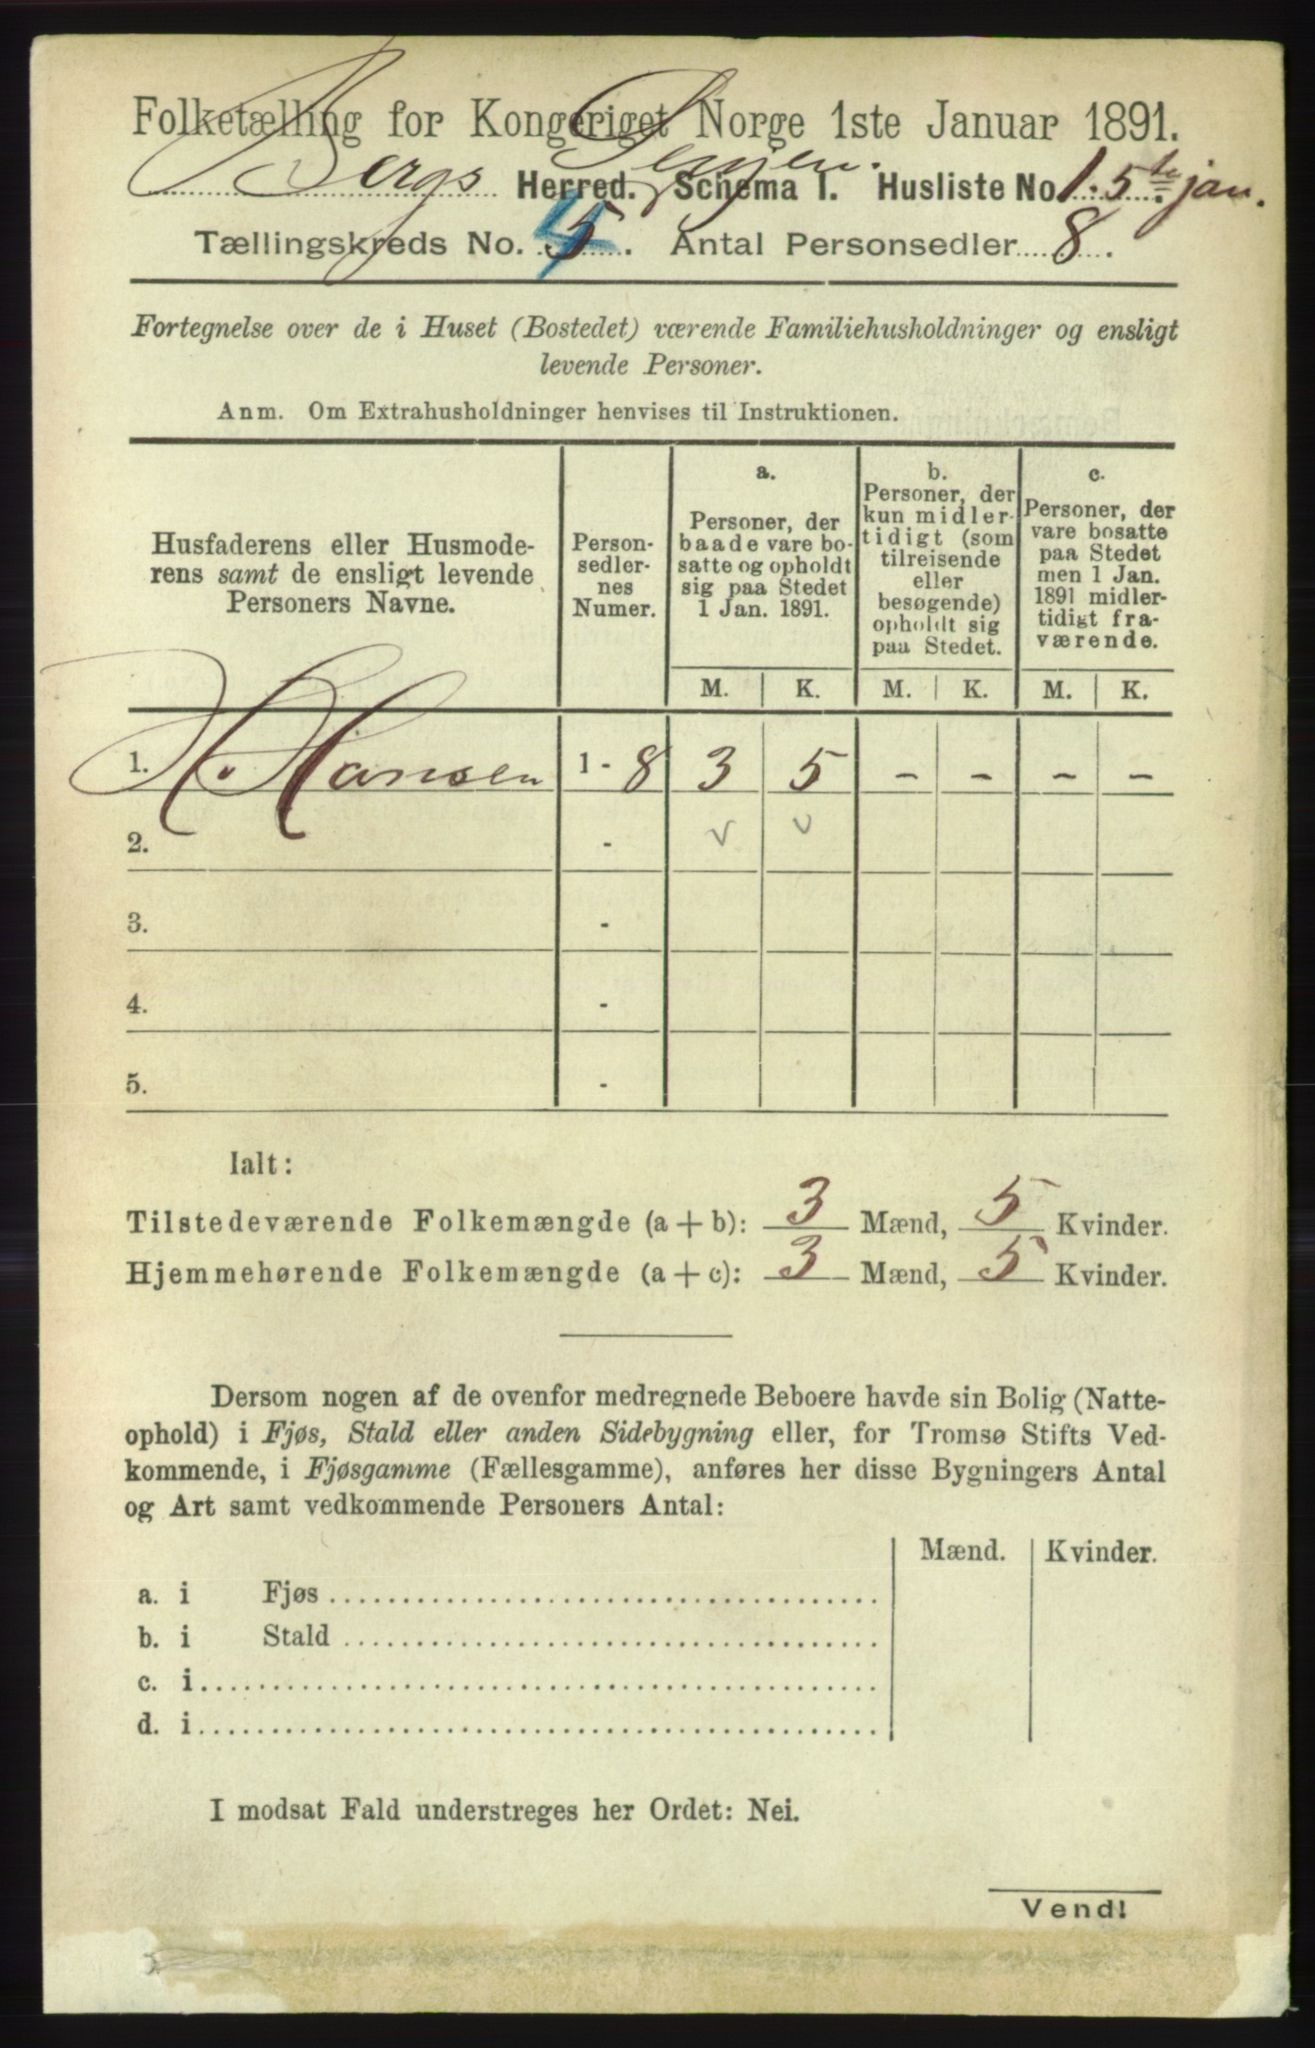 Folketælling for Kongeriget Norge 1ste Januar 1891.
Bergs Herred. Senjen. Schema I. Husliste No. 1. 5te jan.
Tællingskreds No. 5 4. Antal Personsedler 8.
Fortegnelse over de i Huset (Bostedet) værende Familiehusholdninger og ensligt
levende Personer.
Anm. Om Extrahusholdninger henvises til Instruktionen.
Husfaderens eller Husmode-
rens samt de ensligt levende
Personers Navne.
Person-
sedler-
nes
Numer.
a.
Personer, der
baade vare bo-
satte og opholdt
sig paa Stedet
1 Jan. 1891.
b.
Personer, der
kun midler-
tidigt (som
tilreisende
eller
besøgende)
opholdt sig
paa Stedet.
c.
Personer, der
vare bosatte
paa Stedet
men 1 Jan.
1891 midler-
tidigt fra-
værende.
M. K. M. K. M. K.
1. H. Hansen 1 - 8 3 5 - - - -
2. - v v
3. -
4. -
5. -
Ialt:
Tilstedeværende Folkemængde (a + b): 3 Mænd, 5 Kvinder.
Hjemmehørende Folkemængde (a + c): 3 Mænd, 5 Kvinder.
Dersom nogen af de ovenfor medregnede Beboere havde sin Bolig (Natte-
ophold) i Fjøs, Stald eller anden Sidebygning eller, for Tromsø Stifts Ved-
kommende, i Fjøsgamme (Fællesgamme), anføres her disse Bygningers Antal
og Art samt vedkommende Personers Antal:
Mænd. Kvinder.
a. i Fjøs
b. i Stald
c. i
d. i
I modsat Fald understreges her Ordet: Nei.
Vend!